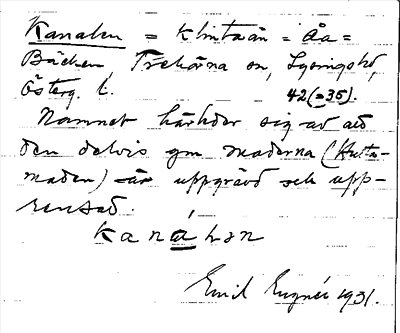 Kanalen = Klintaån = Åa =
Bäcken Trehörna sn, Lysings hd,
Österg. l. 42 (=35).
Namnet härleder sig av att
den delvis gm maderna (Hulta-
maden) är uppgrävd och upp-
rensad.
Kanálən
Emil 1931.